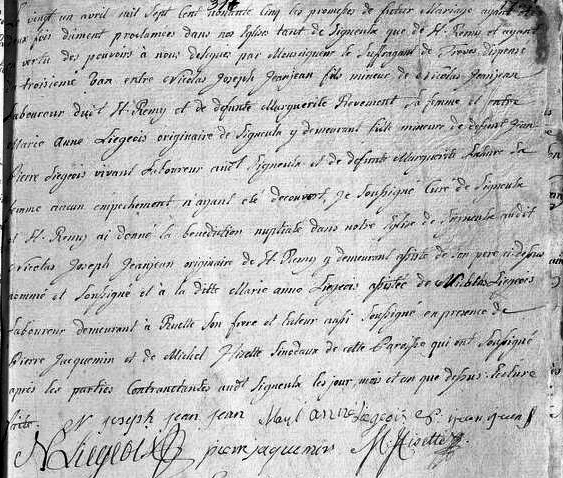 vingt un avril mil Sept Cent nonante cinq les promesses de futur Mariage ayant
deux fois dûment proclamées dans nos Eglise tant de Signeula que de St. Remy et ayant
vertu des pouvoirs à nous par Monseigneur le Suffragant de Treves dispense
troisieme ban entre Nicolas Joseph Jeanjean fils mineur de Nicolas Jeanjean
Laboureur St. Remy et de défunte Marguerite Pievement Sa femme et entre
Marie Anne Liegeois originaire de Signeula y demeurant fille mineure de défunt Jean
Pierre Liegeois vivant Laboureur audt Signeula et de défunte Marguerite Sa
femme aucun empechement n'ayant été decouvert, Je Soussigné Curé de Signeula
et St. Remy ai donné la benediction nuptiale dans notre Eglise de Signeula audit
Nicolas Joseph Jeanjean originaire de St. Remy y demeurant assisté de Son pere ci-dessus
nommé et Soussigné et à la ditte Marie anne Liegeois assistée de Nicolas Liegeois
Laboureur demeurant à Ruette Son frere et tuteur aussi Soussigné en presence de
Pierre Jacquemin et de Michel Hisette Sinodaux de cette Paroisse qui ont Soussigné
après les parties Contractantes audt Signeula les jour, mois et an que dessus. Lecture
faite. N joseph jean jean anne liegeois
N Liegeois pierre jaquemin M. Hisette